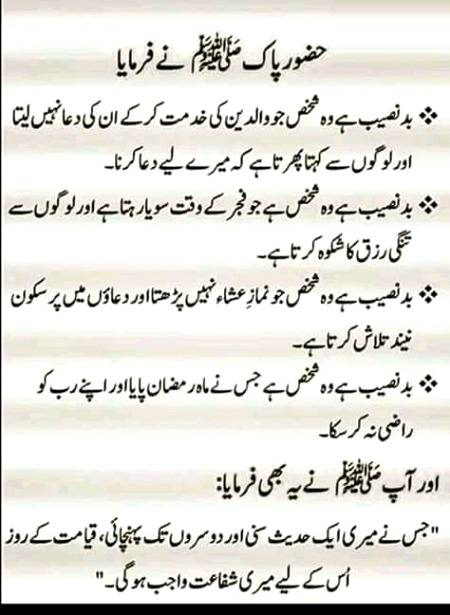 حضور پاک ﷺ نے فرمایا
❖ بدنصیب ہے وہ شخص جو والدین کی خدمت کر کے ان کی دعا نہیں لیتا
اور لوگوں سے کہتا پھرتا ہے کہ میرے لیے دعا کرنا۔
❖ بدنصیب ہے وہ شخص ہے جو فجر کے وقت سویا رہتا ہے اور لوگوں سے
تنگی رزق کا شکوہ کرتا ہے۔
❖ بدنصیب ہے وہ شخص جو نمازِ عشاء نہیں پڑھتا اور دعاؤں میں پر سکون
نیند تلاش کرتا ہے۔
❖ بدنصیب ہے وہ شخص ہے جس نے ماہ رمضان پایا اور اپنے رب کو
راضی نہ کر سکا۔
اور آپ ﷺ نے یہ بھی فرمایا:
"جس نے میری ایک حدیث سنی اور دوسروں تک پہنچائی، قیامت کے روز
اُس کے لیے میری شفاعت واجب ہو گی۔"